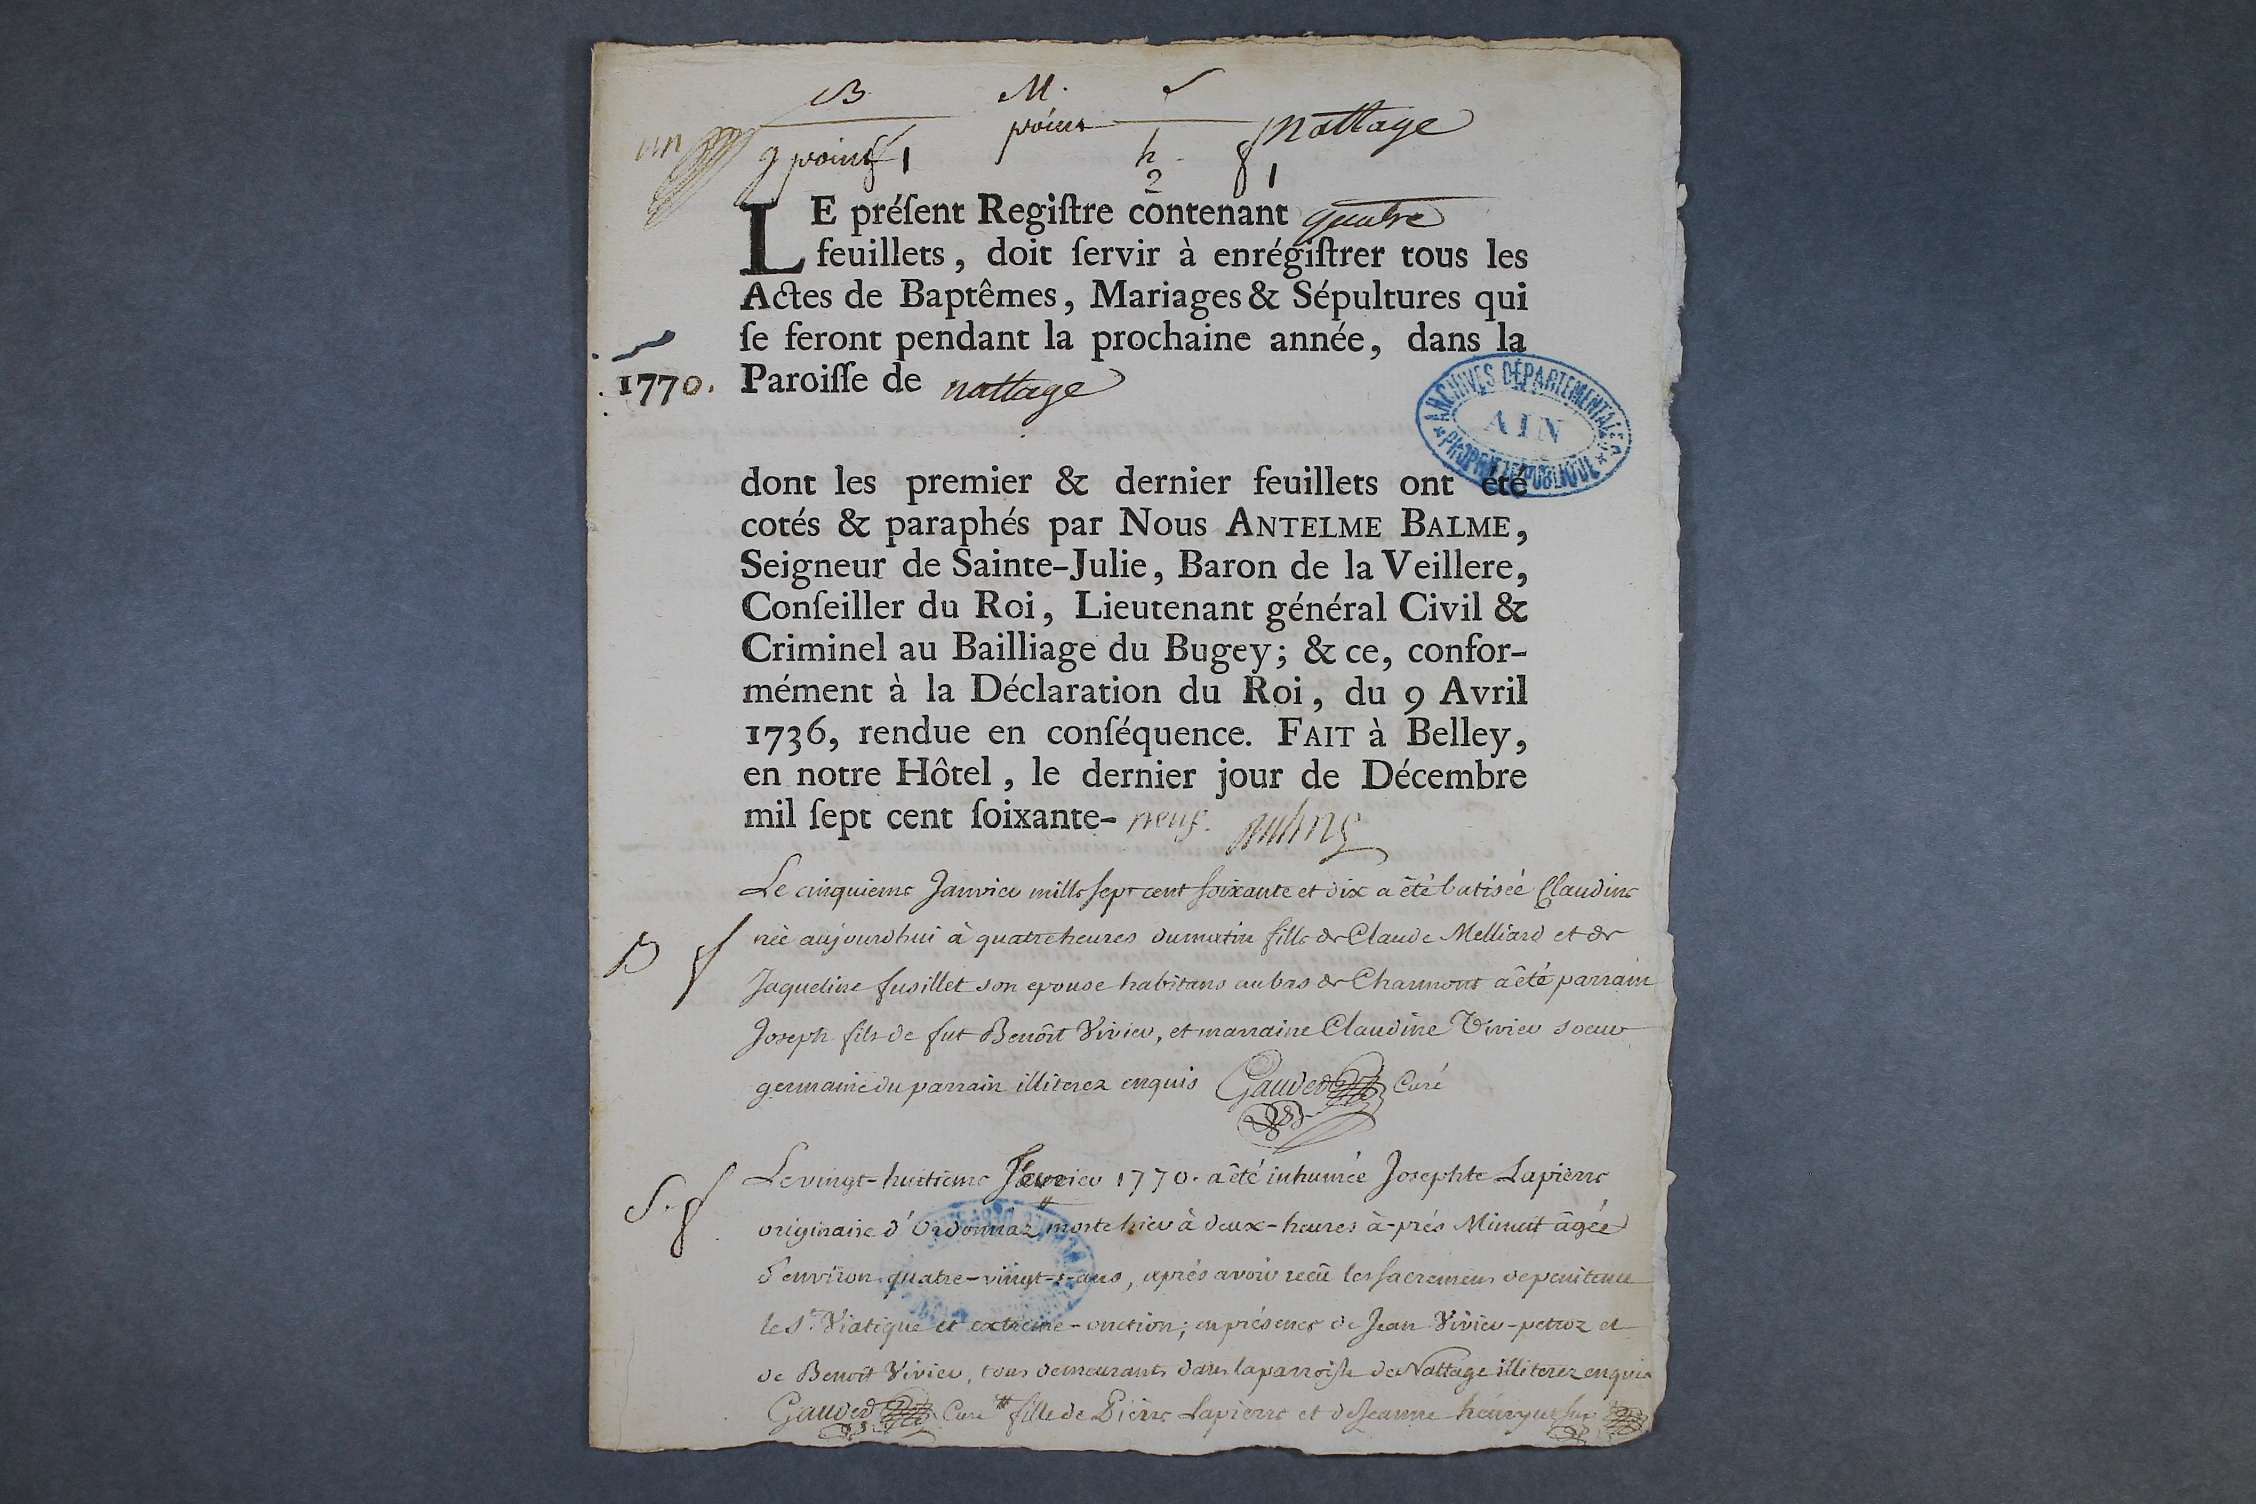 B. M. S
point
9 point 1 h. nattage
2 1
LE préſent Regiſtre contenant quatre
feuillets, doit ſervir à enrégiſtrer tous les
Actes de Baptêmes, Mariages & Sépultures qui
ſe feront pendant la prochaine année, dans la
1770. Paroiſſe de nattage
ARCHIVES DÉPARTEMENTALES
AIN
PROPRIÉTÉ PUBLIQUE
dont les premier & dernier feuillets ont été
cotés & paraphés par Nous ANTELME BALME,
Seigneur de Sainte-Julie, Baron de la Veillere,
Conſeiller du Roi, Lieutenant général Civil &
Criminel au Bailliage du Bugey; & ce, confor-
mément à la Déclaration du Roi, du 9 Avril
1736, rendue en conſéquence. FAIT à Belley,
en notre Hôtel, le dernier jour de Décembre
mil ſept cent ſoixante- neuf.
Le cinquieme Janvier mille sept cent soixante et dix a êté batisée Claudine
B f née aujourdhui à quatre heures du matin fille de Claude Melliard et de
Jaqueline fusillet son epouse habitans au bas de Charmont a êté parrain
Joseph fils de fut Benoît Vivier, et marraine Claudine Vivier soeur
germaine du parrain illiterez enquis Gauder Curé
S. f Le vingt-huitieme Fevrier 1770. a êté inhumée Josephte Lapierre
originaire d'Ordonnaz # morte hier à deux-heures à-prés Minuit âgée
d'environ quatre-vingt-s-ans, aprés avoir reçû les sacremens de penitence
le St. Viatique et extreme-onction; en présence de Jean Vivier-petroz et
de Benoît Vivier, tous demeurants dans la parroisse de Nattage illiterez enquis
Gauder Curé # fille de Pierre Lapierre et de Jeanne